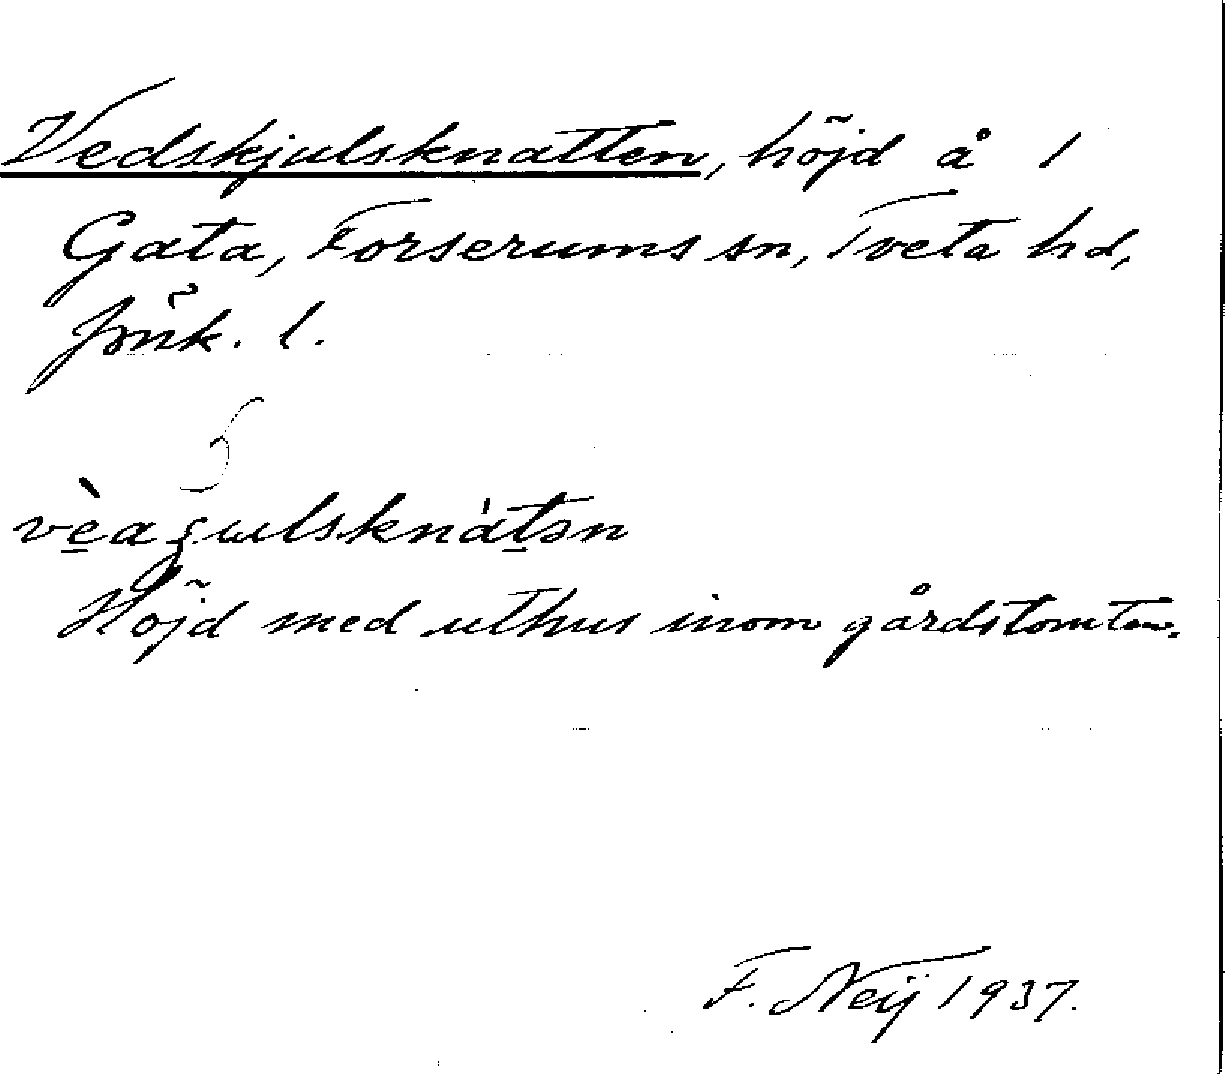 Vedskjulsknatten, höjd å 1
Gata, Forserums sn, Tveta hd,
Jönk. l.
Höjd med uthus inom gårdstomten.
F. Neij 1937.